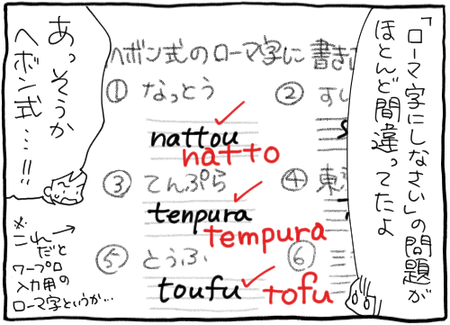 「ローマ字にしなさい」の問題が
ほとんど間違ってたよ
ヘボン式のローマ字に 書き
① なっとう
② すし
nattou
natto
③ てんぷら
④ 東
tenpura
tempura
⑤ とうふ
⑥ 三
toufu
tofu
あっそうか
ヘボン式…!!
※これだと
ワープロ
入力用の
ローマ字というか…